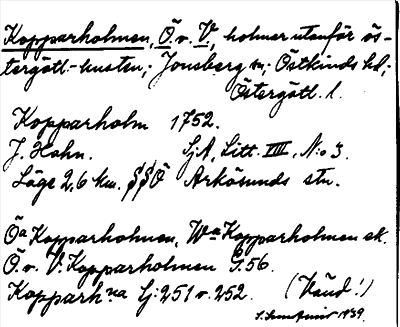 Kopparholmen, Ö. o. V., holmar utanför ös-
tergötl.-kusten; Jonsberg sn; Östkinds hd;
Östergötl. l.
Kopparholm 1752.
J. Hahn. SjA, Litt. XIII, N:o 3.
Läge 2,6 km. SSÖ Arkösunds stn.
Öa Kopparholmen, Wa Kopparholmen ek.
Ö. o. V. Kopparholmen G. 56.
Kopparh:na Lj: 251 o. 252. (Känd!)
1939.